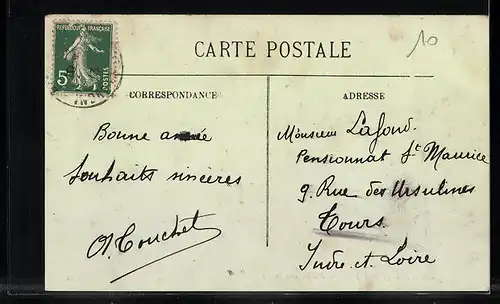 REPUBLIQUE FRANÇAISE
5c
POSTES
CARTE POSTALE
10
CORRESPONDANCE
ADRESSE
Bonne année
Souhaits sincères
Touchet
Monsieur Lafond.
Pensionnat St Maurice
9. Rue des Ursulines
Tours.
Indre et Loire